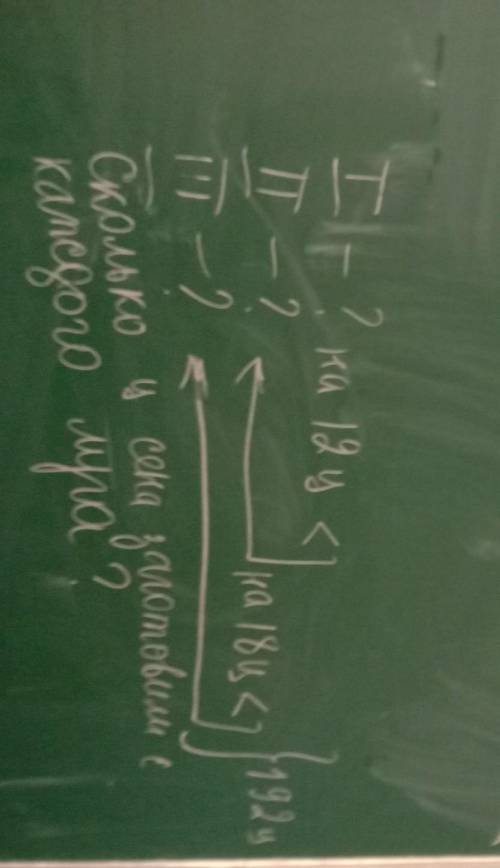 I - ? на 12 ц <
II - ? на 18 ц < } 192 ц
III - ?
Сколько ц сена заготовили с
каждого луга?